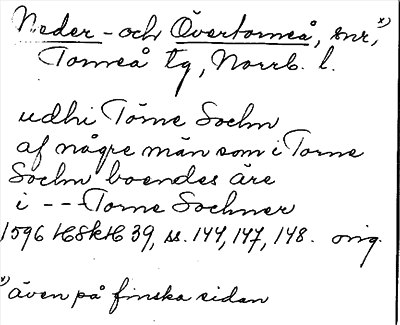 Neder- och Övertorneå, snr,x)
Torneå tg, Norrb. l.
udhi Törne Sochn
af någre män som i Torne
Sochn boendes äre
i --- Torne Sochner
1596 HSkH 39, ss. 144, 147, 148. orig.
x) även på finska sidan